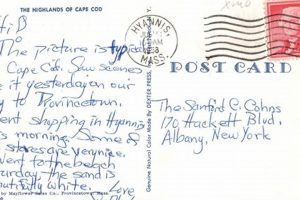 THE HIGHLANDS OF CAPE COD
Hi B
The picture is typical
Cape Cod. Saw scenes
like it yesterday on our
to Provincetown.
Went shopping in Hyannis
this morning. Some of
stores are very nice.
Went to the beach
Saturday. the sand is
beautifully white.
Love
by Mayflower Sales Co., Provincetown, Mass.
Genuine Natural Color Made by DEXTER PRESS,
HYANNIS,
AM
MASS.
POST CARD
The Sanford C. Cohns
170 Hackett Blvd.
Albany, New York